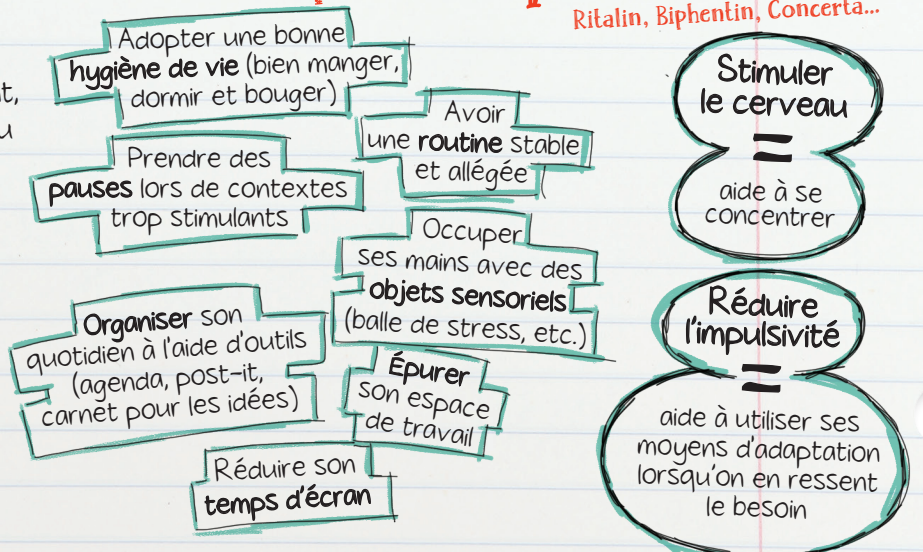 Ritalin, Biphentin, Concerta...
Adopter une bonne
hygiène de vie (bien manger,
dormir et bouger)
Avoir
une routine stable
et allégée
Prendre des
pauses lors de contextes
trop stimulants
Occuper
ses mains avec des
objets sensoriels
(balle de stress, etc.)
Organiser son
quotidien à l'aide d'outils
(agenda, post-it,
carnet pour les idées)
Épurer
son espace
de travail
Réduire son
temps d'écran
Stimuler
le cerveau
=
aide à se
concentrer
Réduire
l'impulsivité
=
aide à utiliser ses
moyens d'adaptation
lorsqu'on en ressent
le besoin